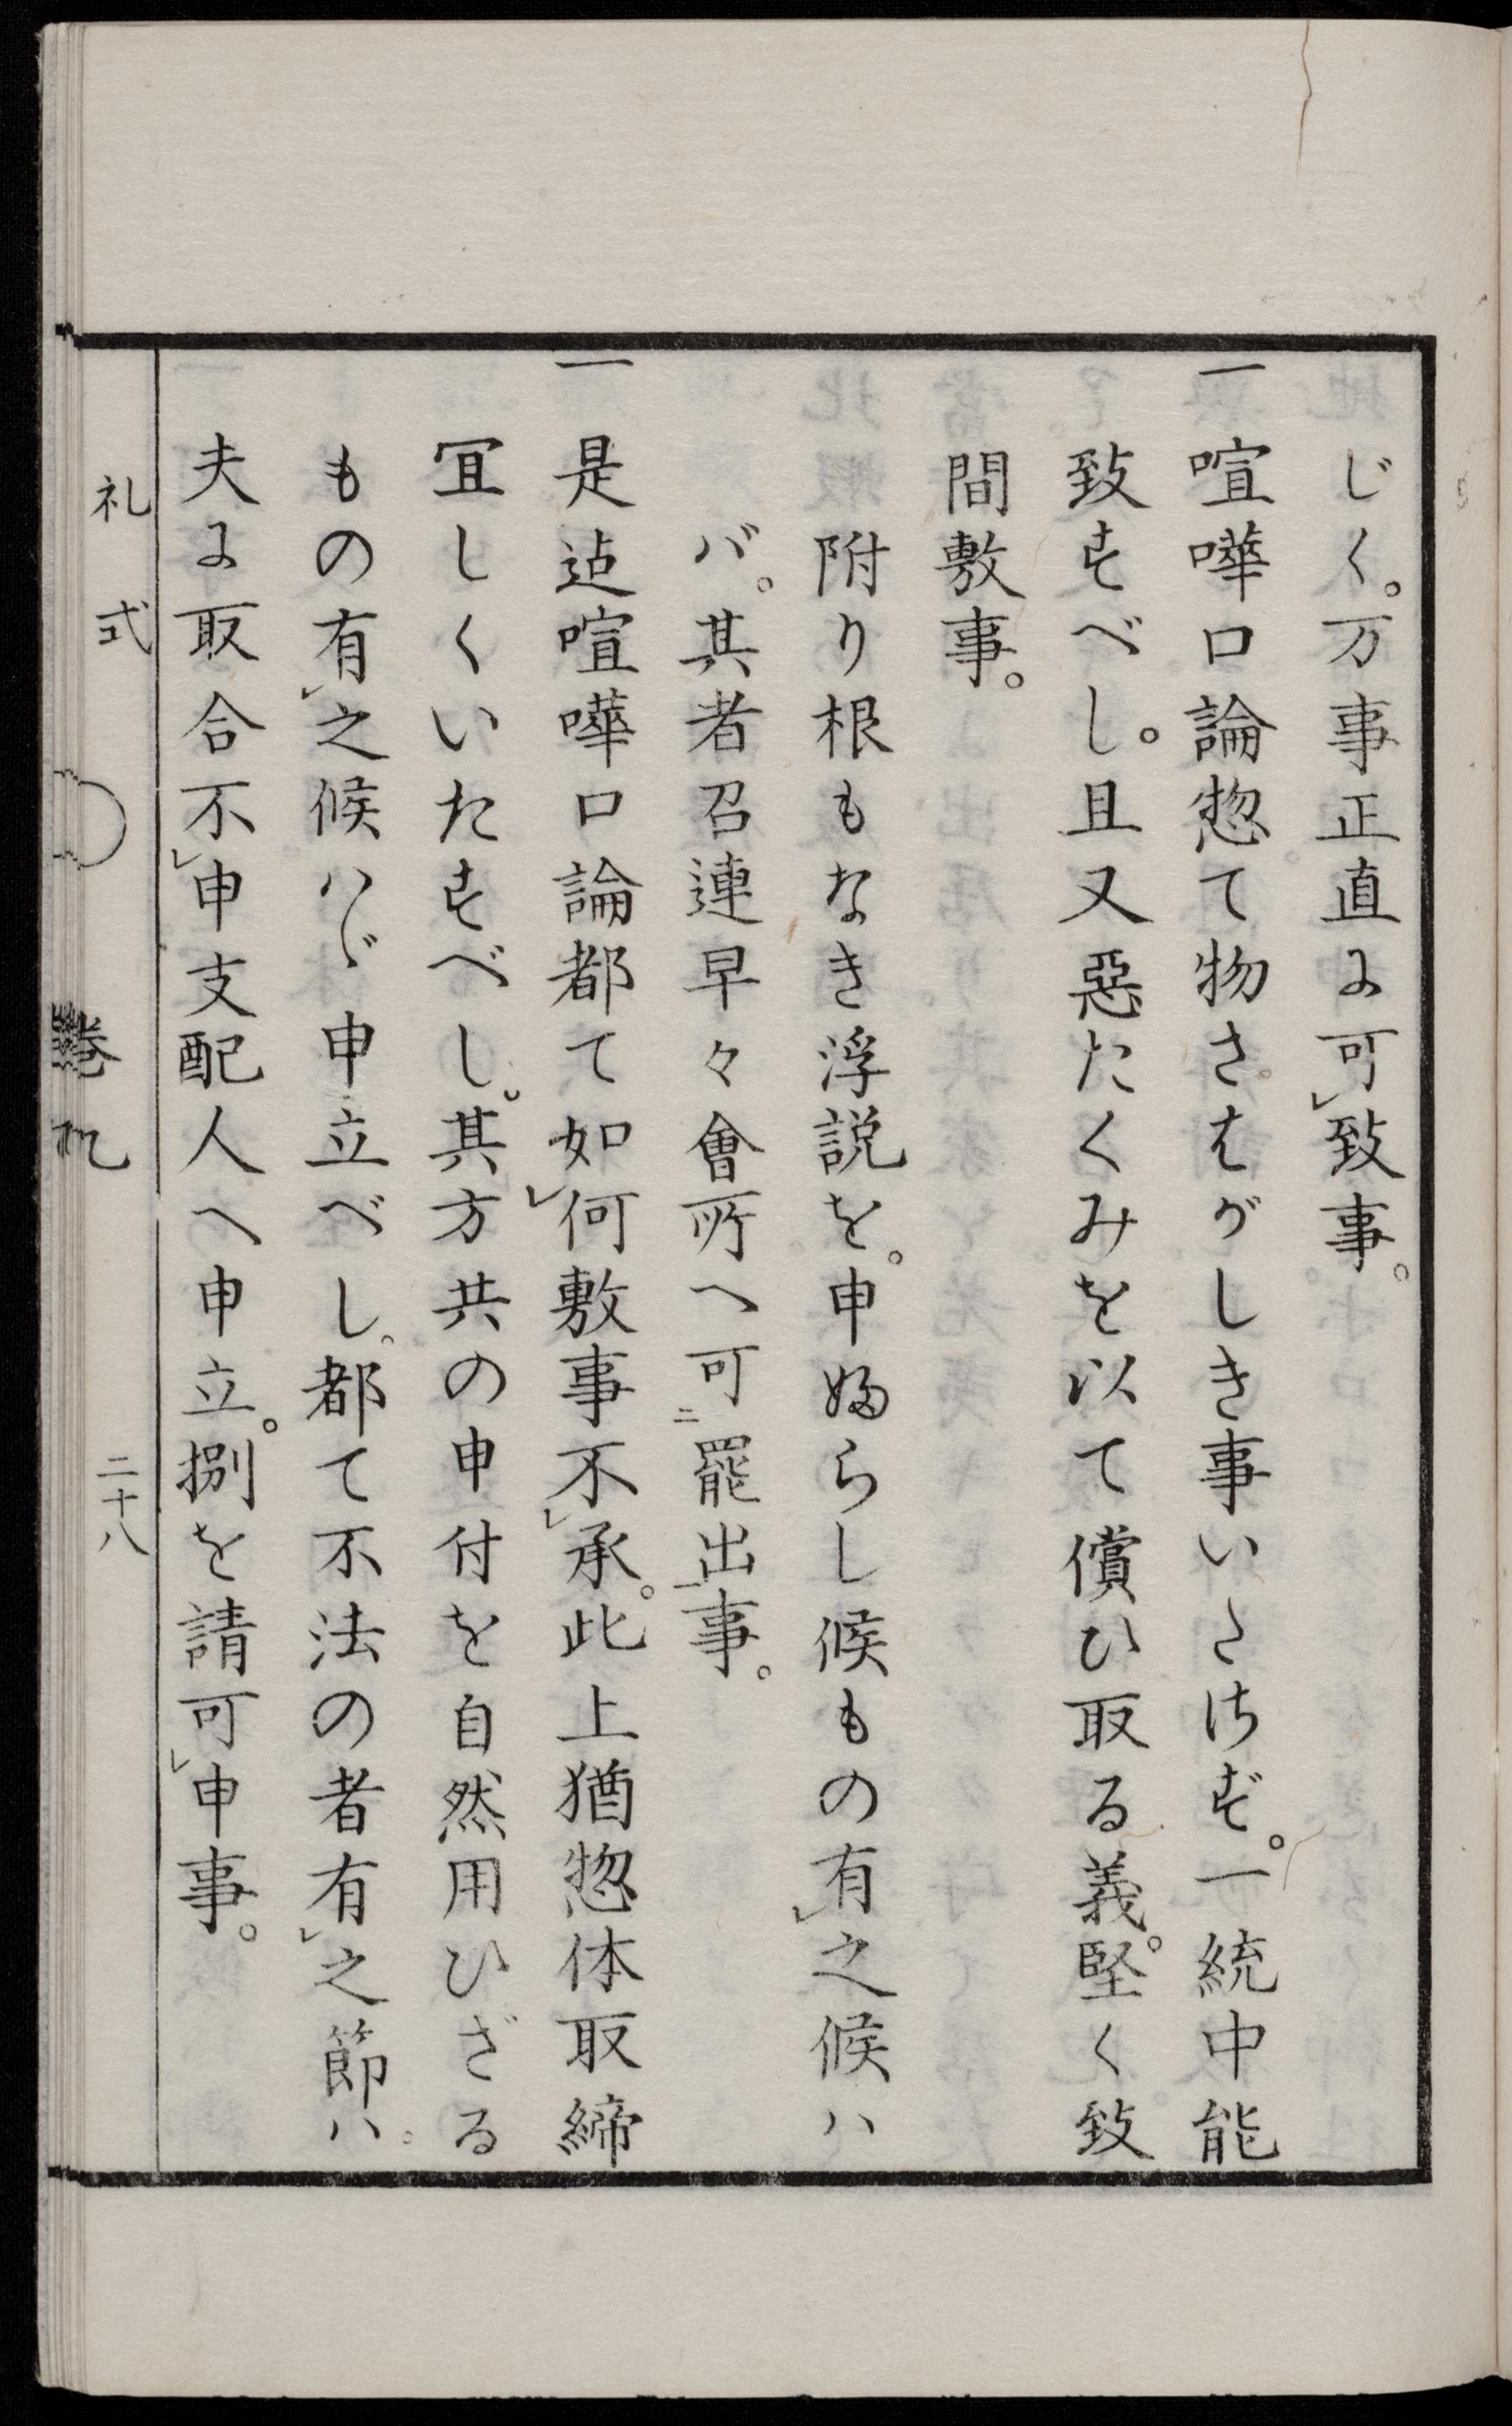 じく。万事正直に可㆑致事。
一喧嘩口論惣て物さはがしき事いたさず。一統中能
致すべし。且又惡たくみを以て償ひ取る義。堅く致
間敷事。
附り根もなき浮説を。申婦らし候もの有㆑之候ハ
バ。其者召連早々會所へ可㆓罷出㆒事。
一是迠喧嘩口論都て如㆑何敷事不㆑承。此上猶惣体取締
冝しくいたすべし。其方共の申付を自然用ひざる
もの有㆑之候ハヾ申立べし。都て不法の者有㆑之節ハ。
夫に取合不㆑申支配人へ申立。捌を請可㆑申事。
礼式 巻九 二十八